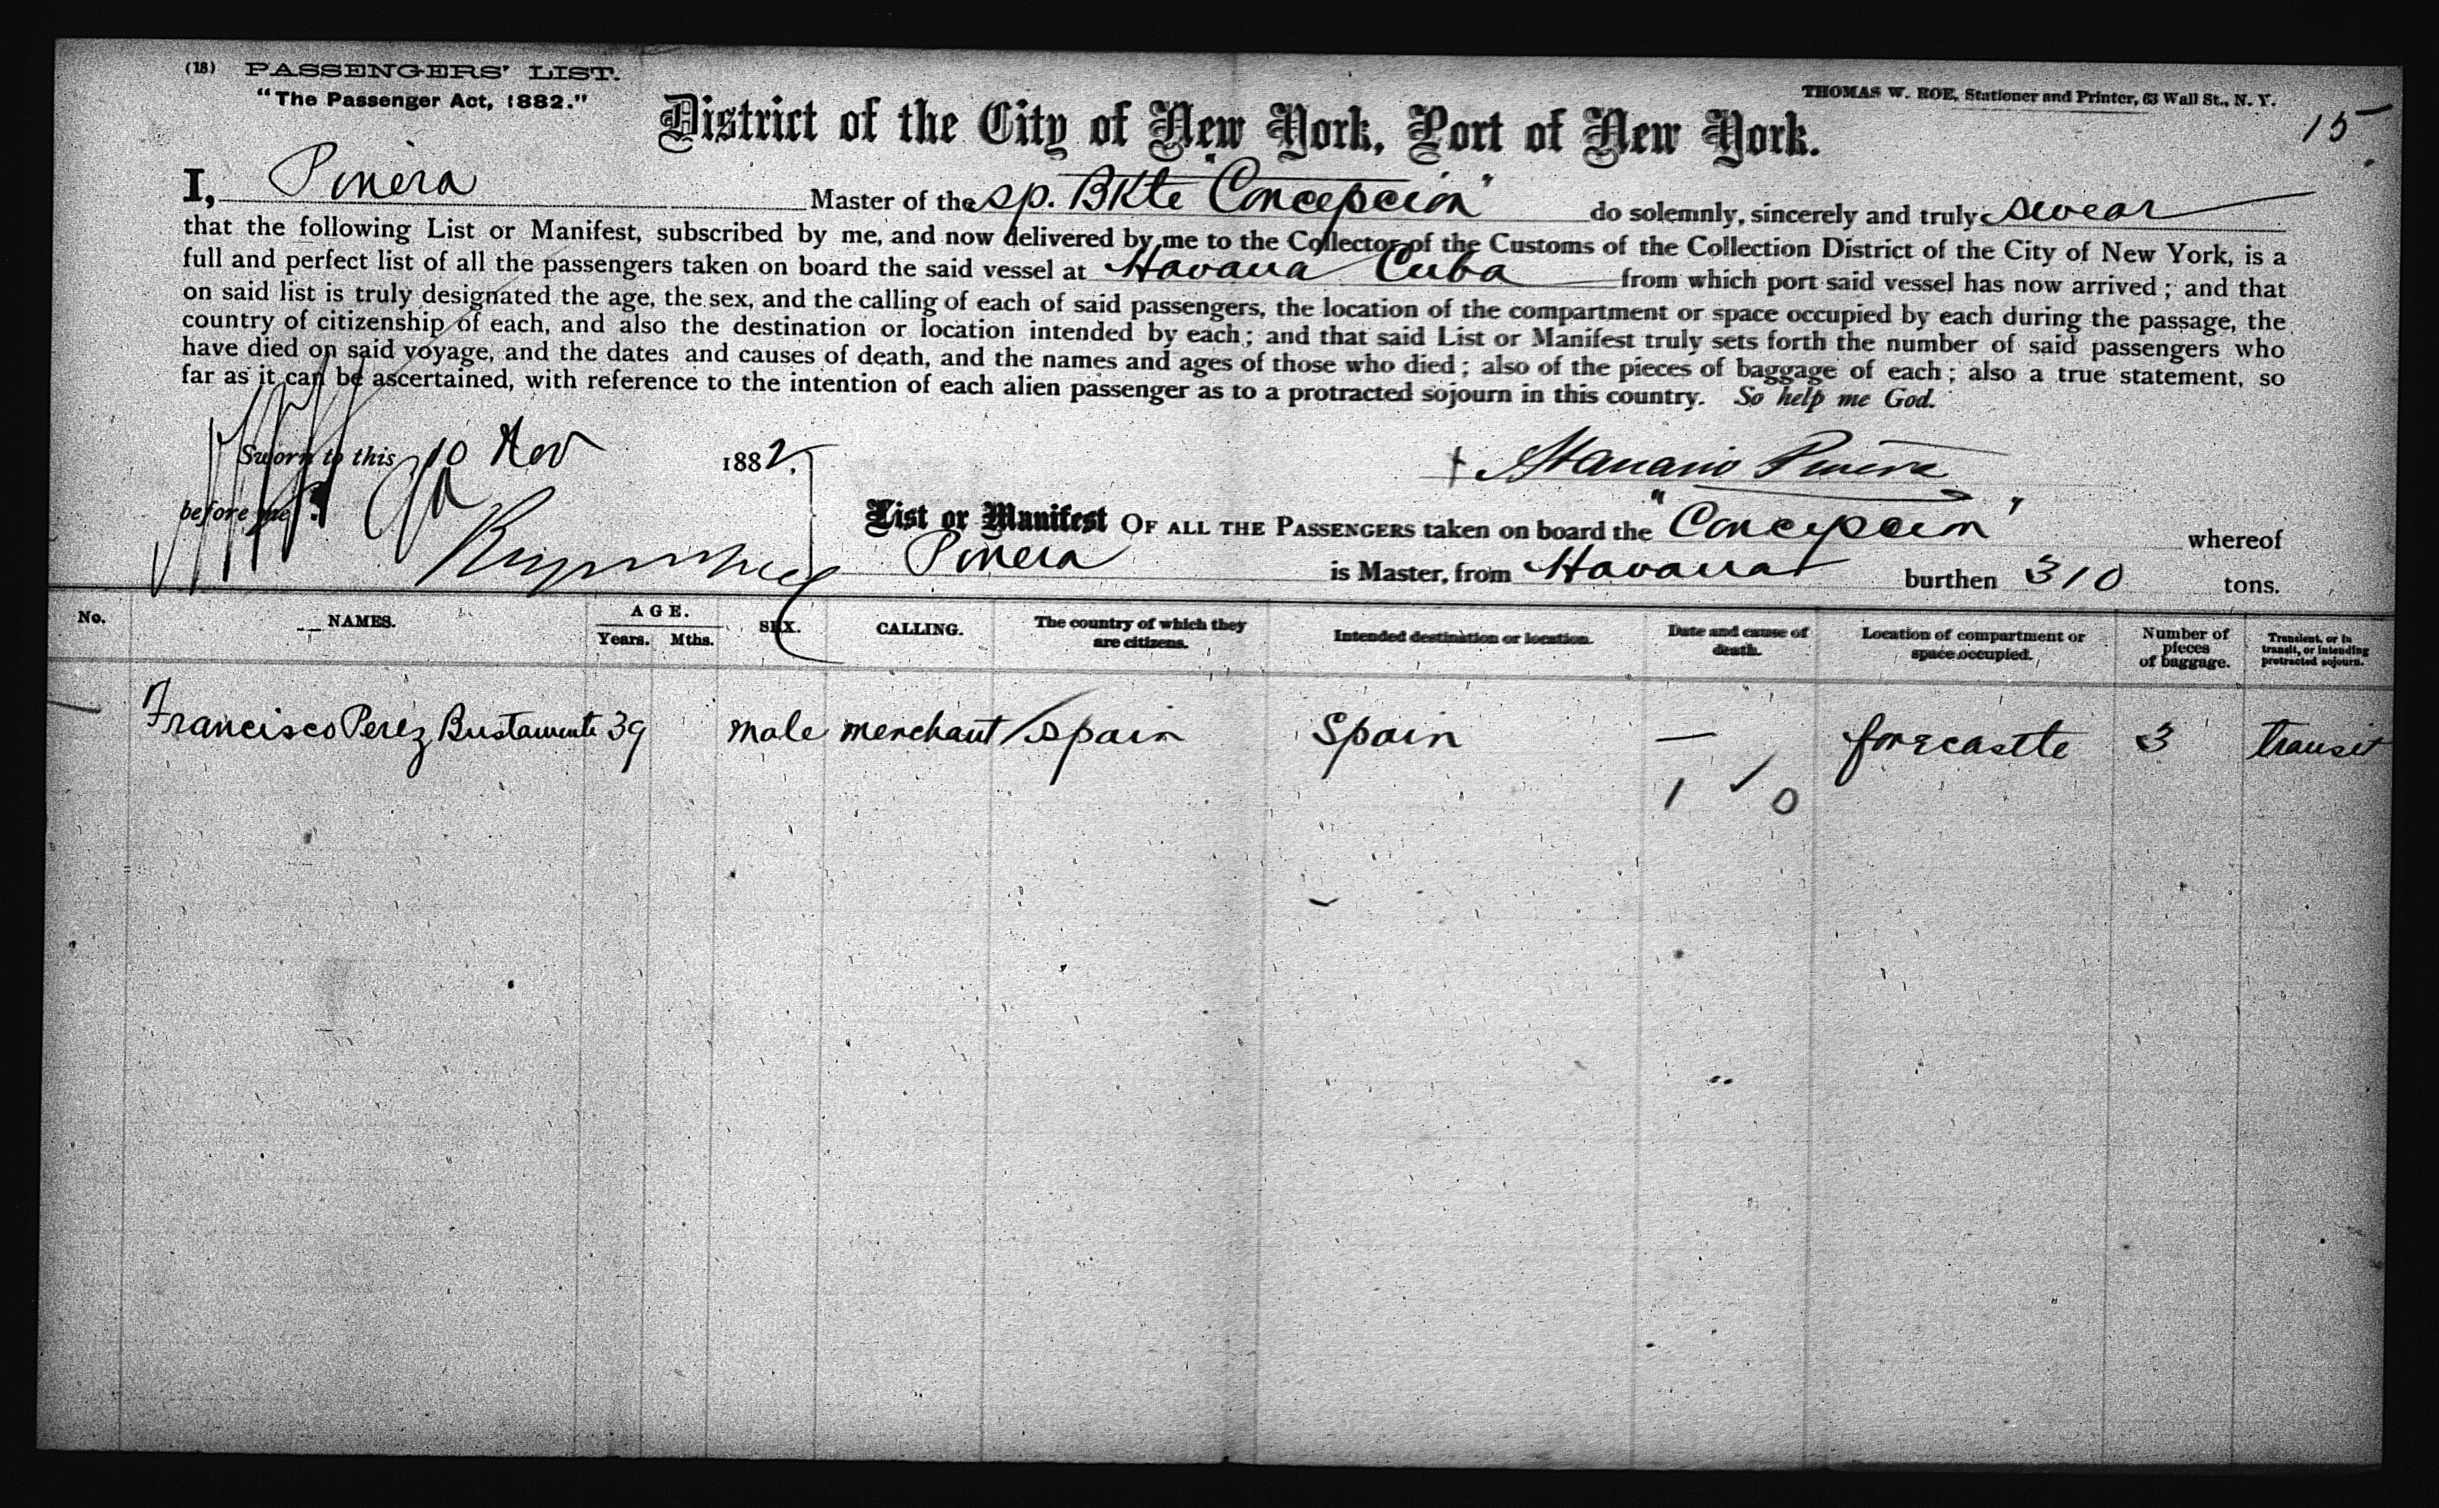 (18) PASSENGERS' LIST.
"The Passenger Act, 1882."
THOMAS W. ROE, Stationer and Printer, 63 Wall St., N. Y.
15
District of the City of New York, Port of New York.
I, Pinera Master of the sp. BKte "Concepcion" do solemnly, sincerely and truly swear
that the following List or Manifest, subscribed by me, and now delivered by me to the Collector of the Customs of the Collection District of the City of New York, is a
full and perfect list of all the passengers taken on board the said vessel at Havana Cuba from which port said vessel has now arrived; and that
on said list is truly designated the age, the sex, and the calling of each of said passengers, the location of the compartment or space occupied by each during the passage, the
country of citizenship of each, and also the destination or location intended by each; and that said List or Manifest truly sets forth the number of said passengers who
have died on said voyage, and the dates and causes of death, and the names and ages of those who died; also of the pieces of baggage of each; also a true statement, so
far as it can be ascertained, with reference to the intention of each alien passenger as to a protracted sojourn in this country. So help me God.
Sworn to this 10 Nov 1882.
Pinera
before me
List or Manifest OF ALL THE PASSENGERS taken on board the "Concepcion" whereof
Pinera is Master, from Havana burthen 310 tons.
No. NAMES. AGE. Years. Mths. SEX. CALLING. The country of which they are citizens. Intended destination or location. Date and cause of death. Location of compartment or space occupied. Number of pieces of baggage. Transient, or in transit, or intending protracted sojourn.
Francisco Perez Bustamente 39 male merchant Spain Spain — forecastle 3 transit
1 ✓ 0